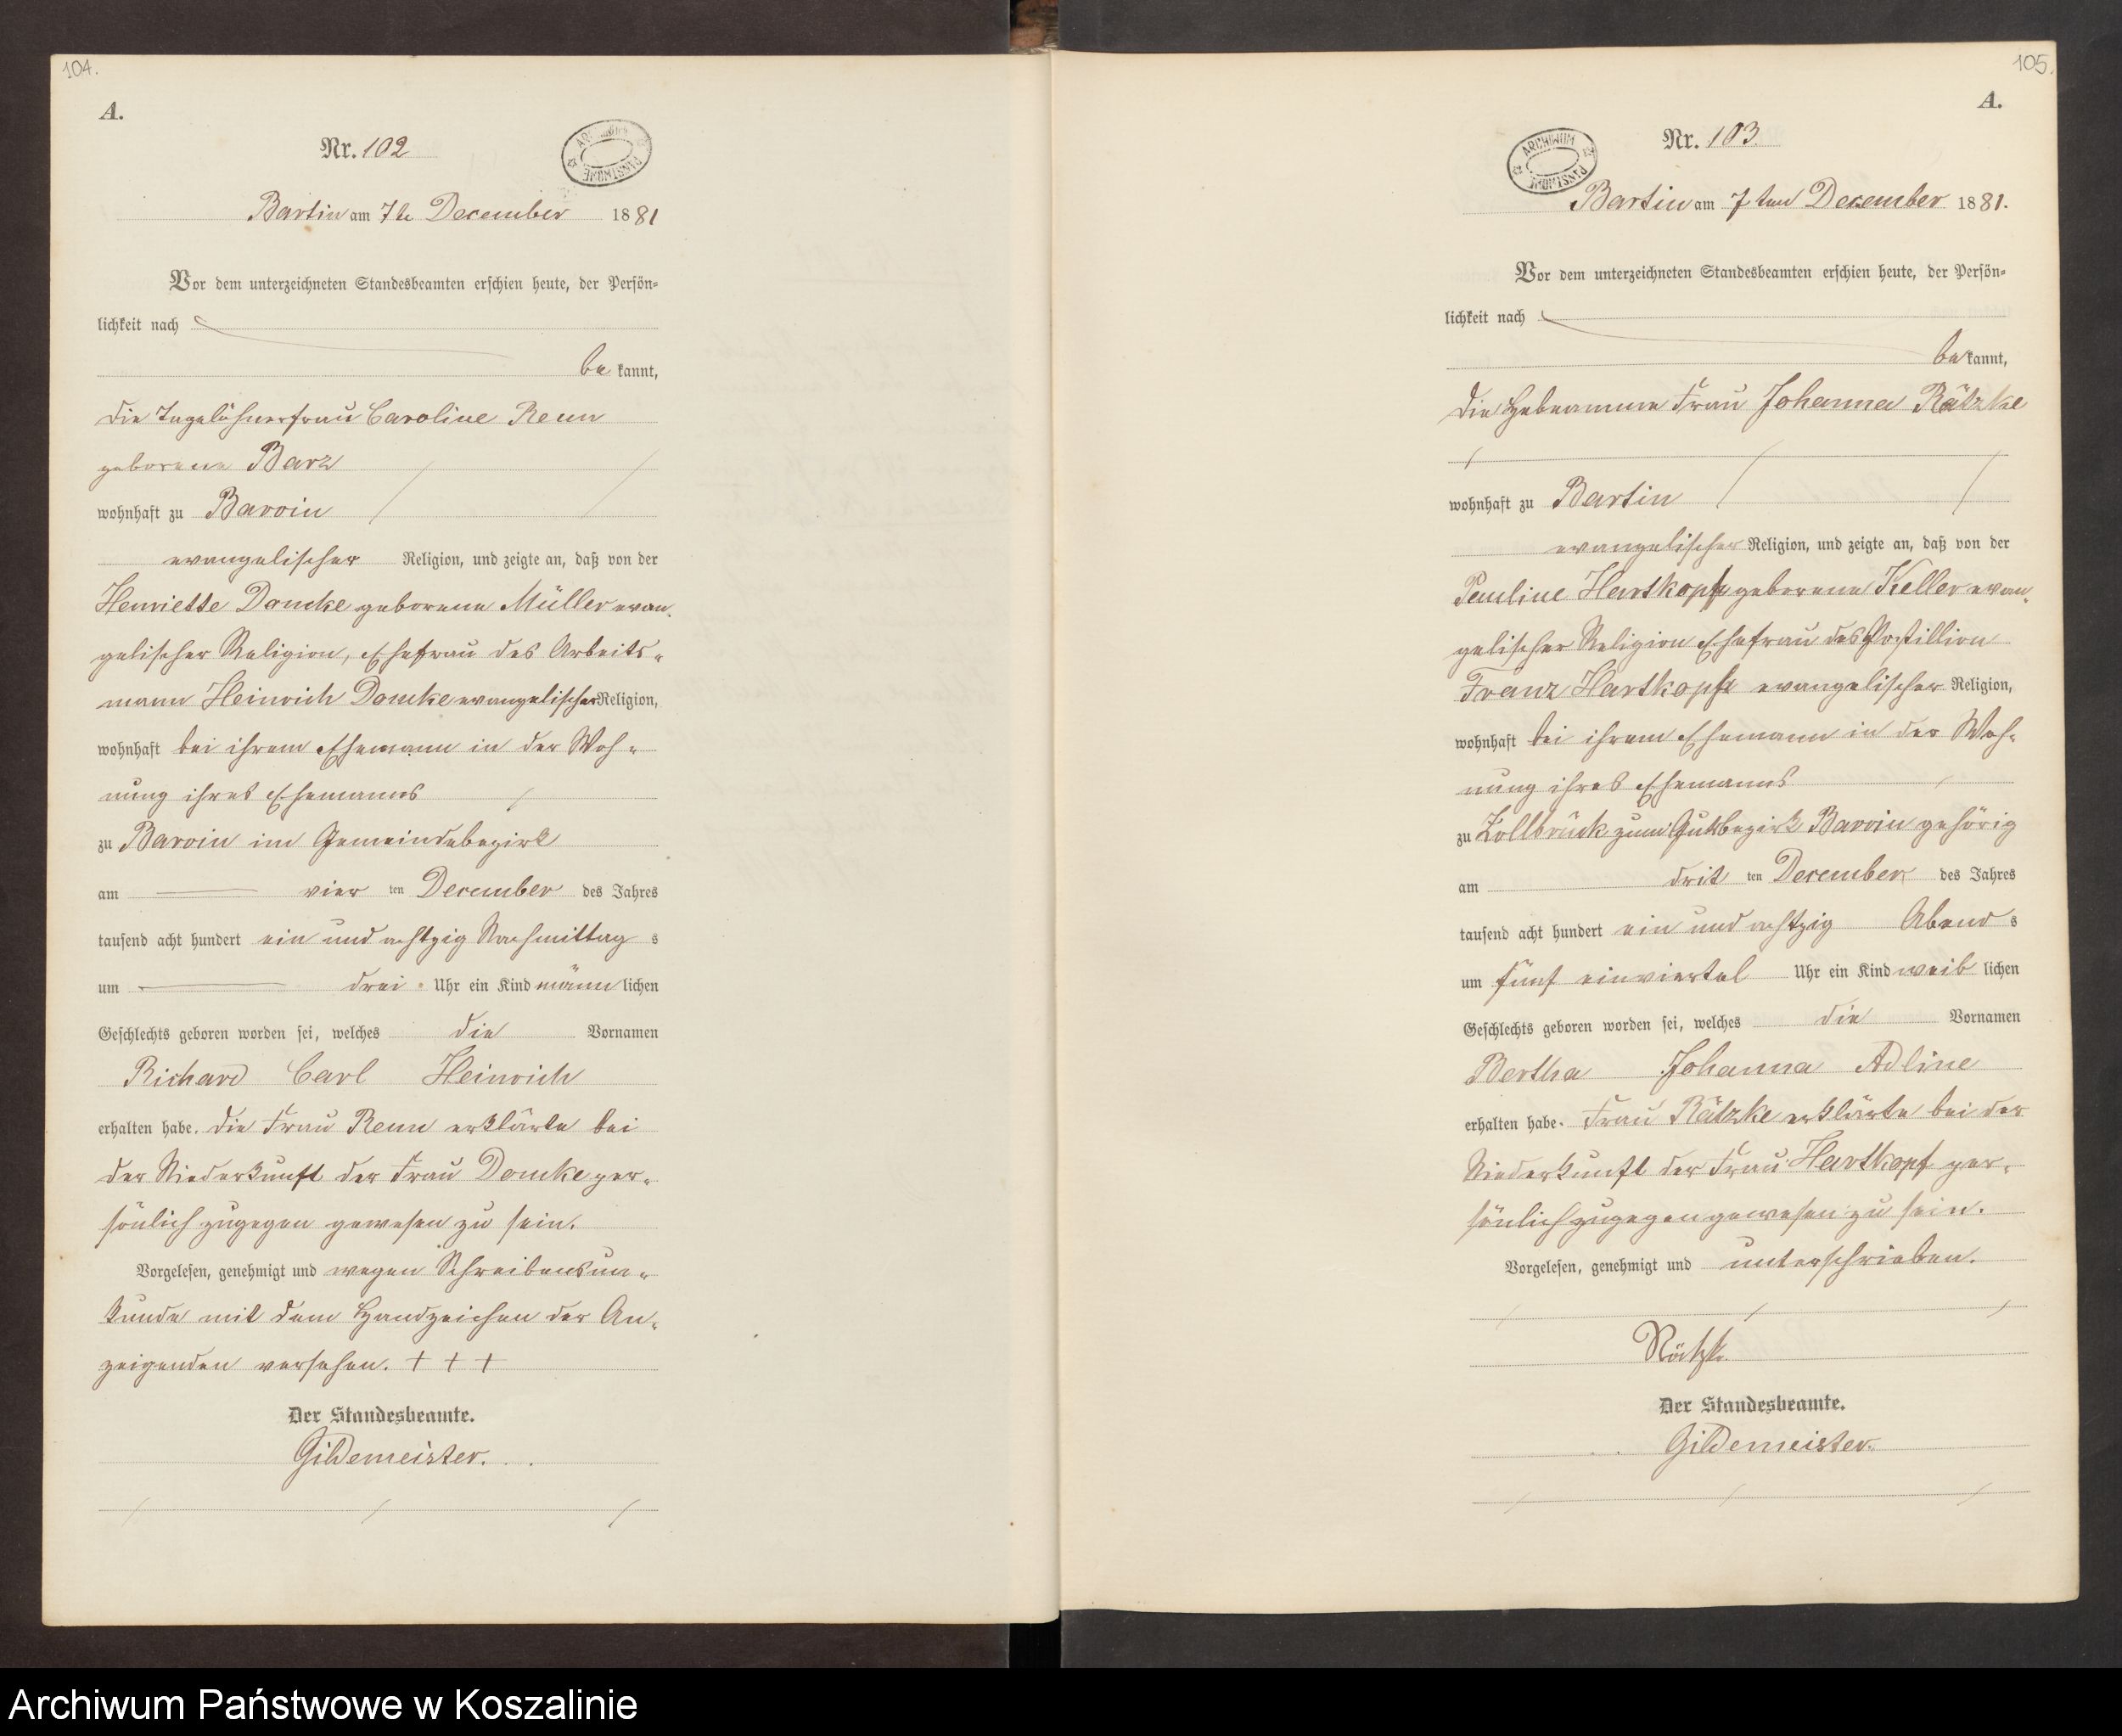 104.
A.
Nr. 102
ARCHIWUM PAŃSTWOWE
Bartin am 7te December 1881
Vor dem unterzeichneten Standesbeamten erschien heute, der Persön-
lichkeit nach
be kannt,
die Tagelöhnerfrau Caroline Renn
geborene Barz
wohnhaft zu Barvin
evangelischer Religion, und zeigte an, daß von der
Henriette Domke geborene Müller evan-
gelischer Religion, Ehefrau des Arbeits-
mann Heinrich Domke evangelischer Religion,
wohnhaft bei ihrem Ehemann in der Woh-
nung ihres Ehemanns
zu Barvin im Gemeindebezirk
am vier ten December des Jahres
tausend acht hundert ein und achtzig Nachmittag s
um drei Uhr ein Kind männ lichen
Geschlechts geboren worden sei, welches die Vornamen
Richard Carl Heinrich
erhalten habe. Die Frau Renn erklärte bei
der Niederkunft der Frau Domke per-
sönlich zugegen gewesen zu sein.
Vorgelesen, genehmigt und wegen Schreibensun-
kunde mit dem Handzeichen der An-
zeigenden versehen. + + +
Der Standesbeamte.
Gildemeister.
105.
A.
Nr. 103.
ARCHIWUM PAŃSTWOWE
Bartin am 7ten December 1881.
Vor dem unterzeichneten Standesbeamten erschien heute, der Persön-
lichkeit nach
be kannt,
die Hebeamme Frau Johanna Rätzke
wohnhaft zu Bartin
evangelischer Religion, und zeigte an, daß von der
Pauline Hartkopf geborene Keller evan-
gelischer Religion Ehefrau des Postillion
Franz Hartkopf evangelischer Religion,
wohnhaft bei ihrem Ehemann in der Woh-
nung ihres Ehemanns
zu Zollbrück zum Gutsbezirk Barvin gehörig
am drit ten December des Jahres
tausend acht hundert ein und achtzig Abend s
um fünf einviertel Uhr ein Kind weib lichen
Geschlechts geboren worden sei, welches die Vornamen
Bertha Johanna Adline
erhalten habe. Frau Rätzke erklärte bei der
Niederkunft der Frau Hartkopf per-
sönlich zugegen gewesen zu sein.
Vorgelesen, genehmigt und unterschrieben.
Rätzke.
Der Standesbeamte.
Gildemeister.
Archiwum Państwowe w Koszalinie